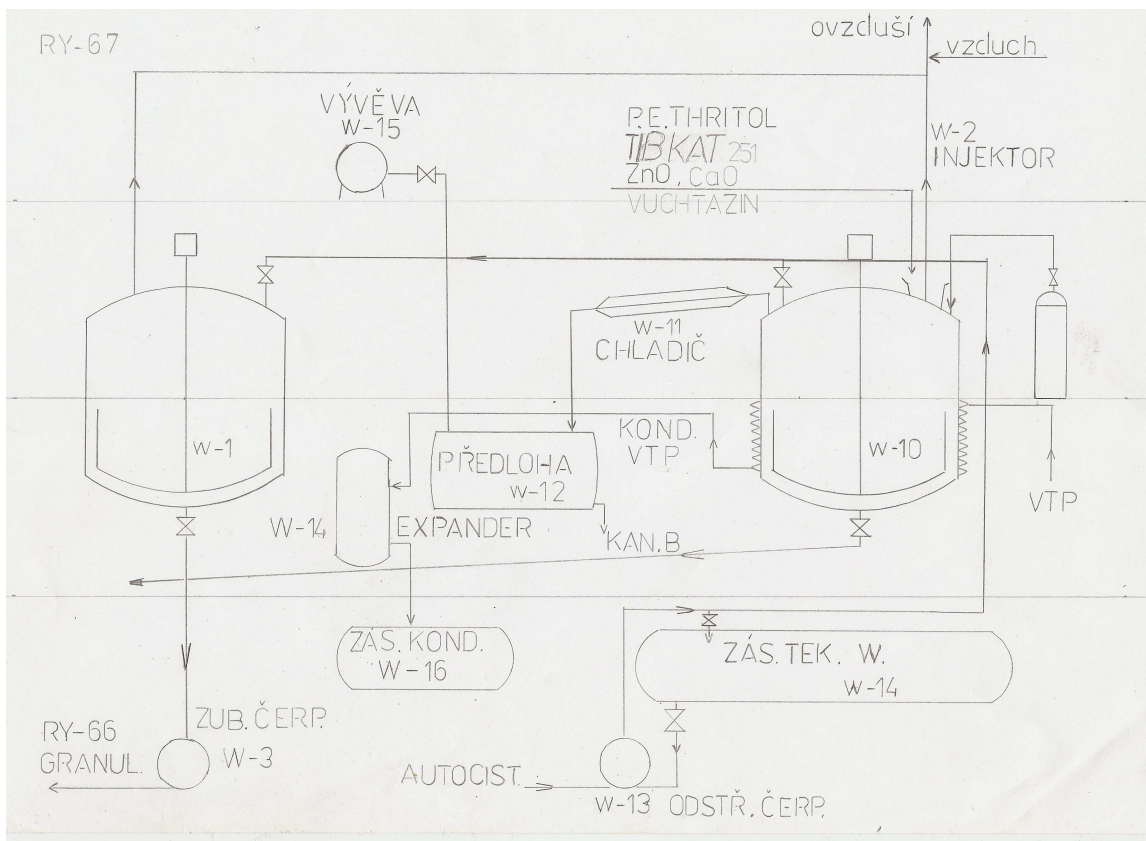 RY-67
ovzduší
vzduch
VÝVĚVA
W-15
P.E.THRITOL
TIBKAT 251
ZnO, CaO
VUCHTAZIN
W-2
INJEKTOR
W-11
CHLADIČ
W-1
PŘEDLOHA
W-12
KOND.
VTP
W-10
VTP
W-14
EXPANDER
KAN.B
ZÁS. KOND.
W-16
ZÁS. TEK. W.
W-14
ZUB. ČERP.
W-3
RY-66
GRANUL.
AUTOCIST.
W-13 ODSTŘ. ČERP.